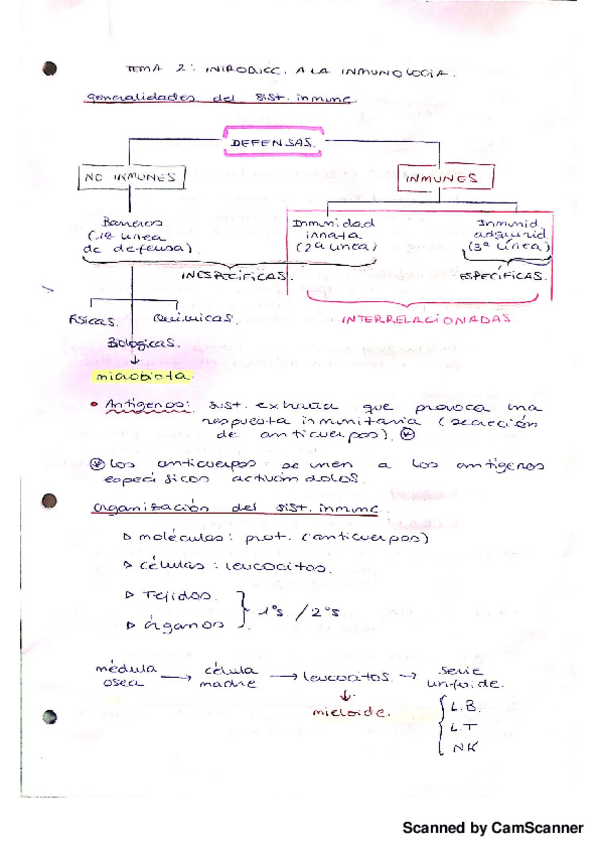 TEMA 2: INTRODUCC. A LA INMUNOLOGÍA.
Generalidades del sist. inmune.
DEFENSAS.
NO INMUNES
INMUNES
Barreras
(1ª línea
de defensa).
Inmunidad
innata
(2ª línea)
Inmunid
adquirid.
(3ª línea)
INESPECÍFICAS.
ESPECÍFICAS.
Físicas.
Químicas.
Biológicas.
INTERRELACIONADAS
↓
microbiota.
• Antígenos: sust. extraña que provoca una
respuesta inmunitaria (secreción
de anticuerpos). *
* Los anticuerpos se unen a los antígenos
específicos activándolos.
Organización del sist. inmune.
▷ moléculas: prot. (anticuerpos)
▷ células: leucocitos.
▷ Tejidos.
▷ órganos
} 1ºs / 2ºs.
médula
osea
→ célula
madre
→ leucocitos. →
serie
linfoide.
↓
mieloide.
L.B.
L.T
NK
Scanned by CamScanner